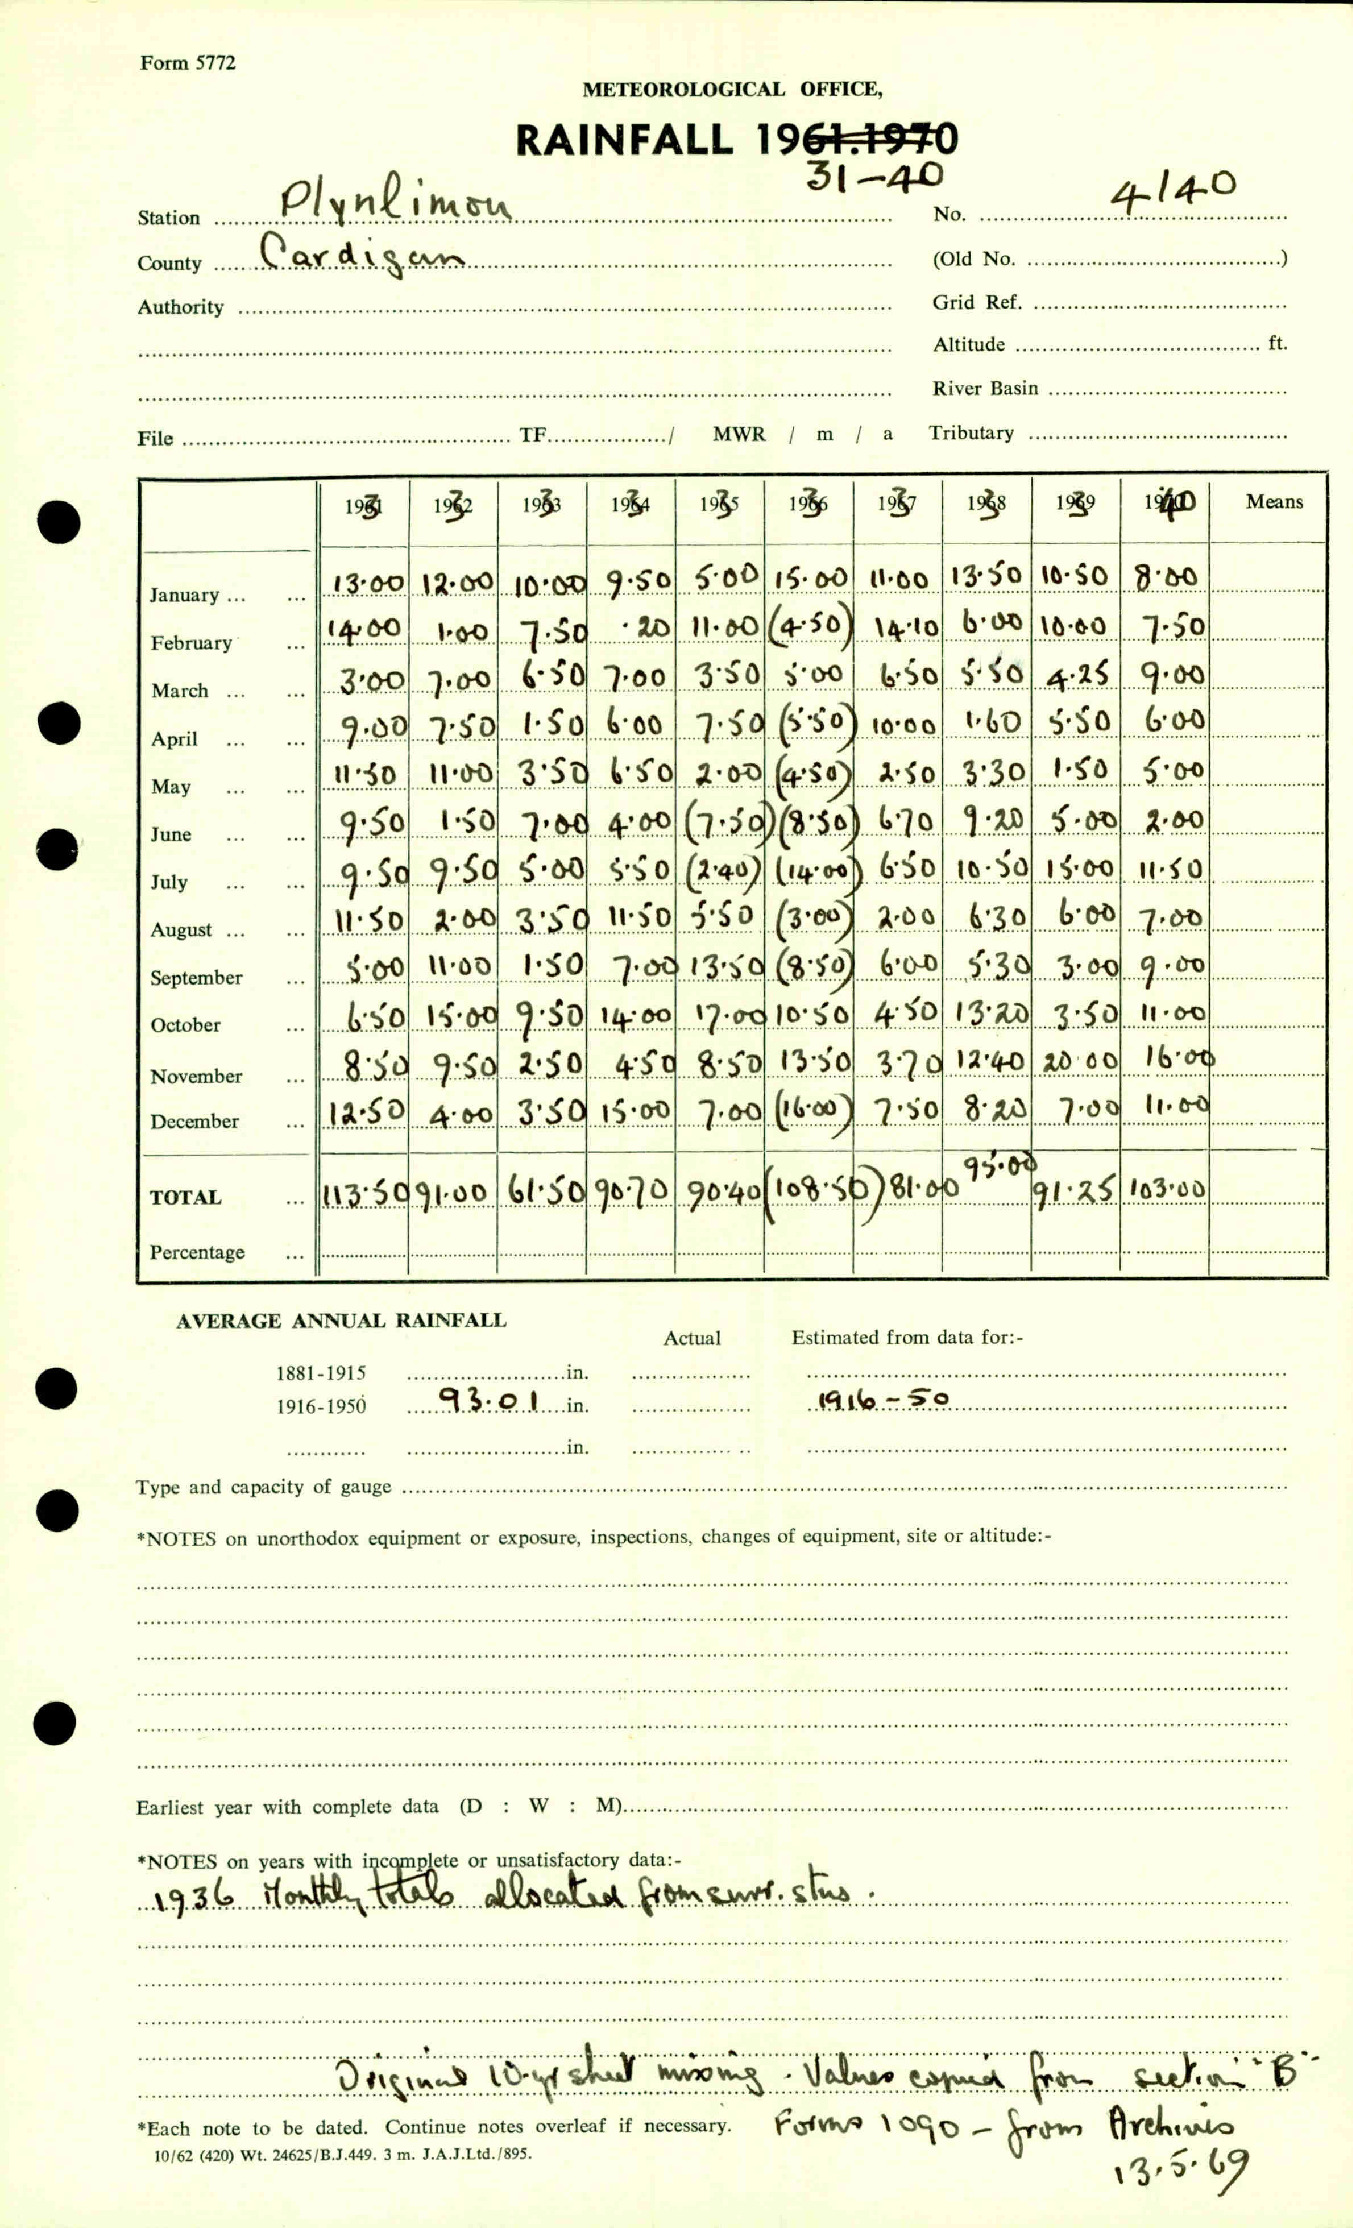 Form 5772
METEOROLOGICAL OFFICE,
RAINFALL 1961-1970
31-40
Station Plynlimon No. 4/40
County Cardigan (Old No. )
Authority Grid Ref.
Altitude ft.
River Basin
File TF / MWR / m / a Tributary
1931 1932 1933 1934 1935 1936 1937 1938 1939 1940 Means
January 13.00 12.00 10.00 9.50 5.00 15.00 11.00 13.50 10.50 8.00
February 14.00 1.00 7.50 .20 11.00 (4.50) 14.10 6.00 10.00 7.50
March 3.00 7.00 6.50 7.00 3.50 5.00 6.50 5.50 4.25 9.00
April 9.00 7.50 1.50 6.00 7.50 (5.50) 10.00 1.60 5.50 6.00
May 11.50 11.00 3.50 6.50 2.00 (4.50) 2.50 3.30 1.50 5.00
June 9.50 1.50 7.00 4.00 (7.50) (8.50) 6.70 9.20 5.00 2.00
July 9.50 9.50 5.00 5.50 (2.40) (14.00) 6.50 10.50 15.00 11.50
August 11.50 2.00 3.50 11.50 5.50 (3.00) 2.00 6.30 6.00 7.00
September 5.00 11.00 1.50 7.00 13.50 (8.50) 6.00 5.30 3.00 9.00
October 6.50 15.00 9.50 14.00 17.00 10.50 4.50 13.20 3.50 11.00
November 8.50 9.50 2.50 4.50 8.50 13.50 3.70 12.40 20.00 16.00
December 12.50 4.00 3.50 15.00 7.00 (16.00) 7.50 8.20 7.00 11.00
TOTAL 113.50 91.00 61.50 90.70 90.40 (108.50) 81.00 95.00 91.25 103.00
Percentage
AVERAGE ANNUAL RAINFALL
Actual Estimated from data for:-
1881-1915 in.
1916-1950 93.01 in. 1916-50
in.
Type and capacity of gauge
*NOTES on unorthodox equipment or exposure, inspections, changes of equipment, site or altitude:-
Earliest year with complete data (D : W : M)
*NOTES on years with incomplete or unsatisfactory data:-
1936 Monthly totals allocated from surr. stns.
Original 10-yr sheet missing. Values copied from section "B"
*Each note to be dated. Continue notes overleaf if necessary. Forms 1090 - from Archives
10/62 (420) Wt. 24625/B.J.449. 3 m. J.A.J.Ltd./895.
13.5.69